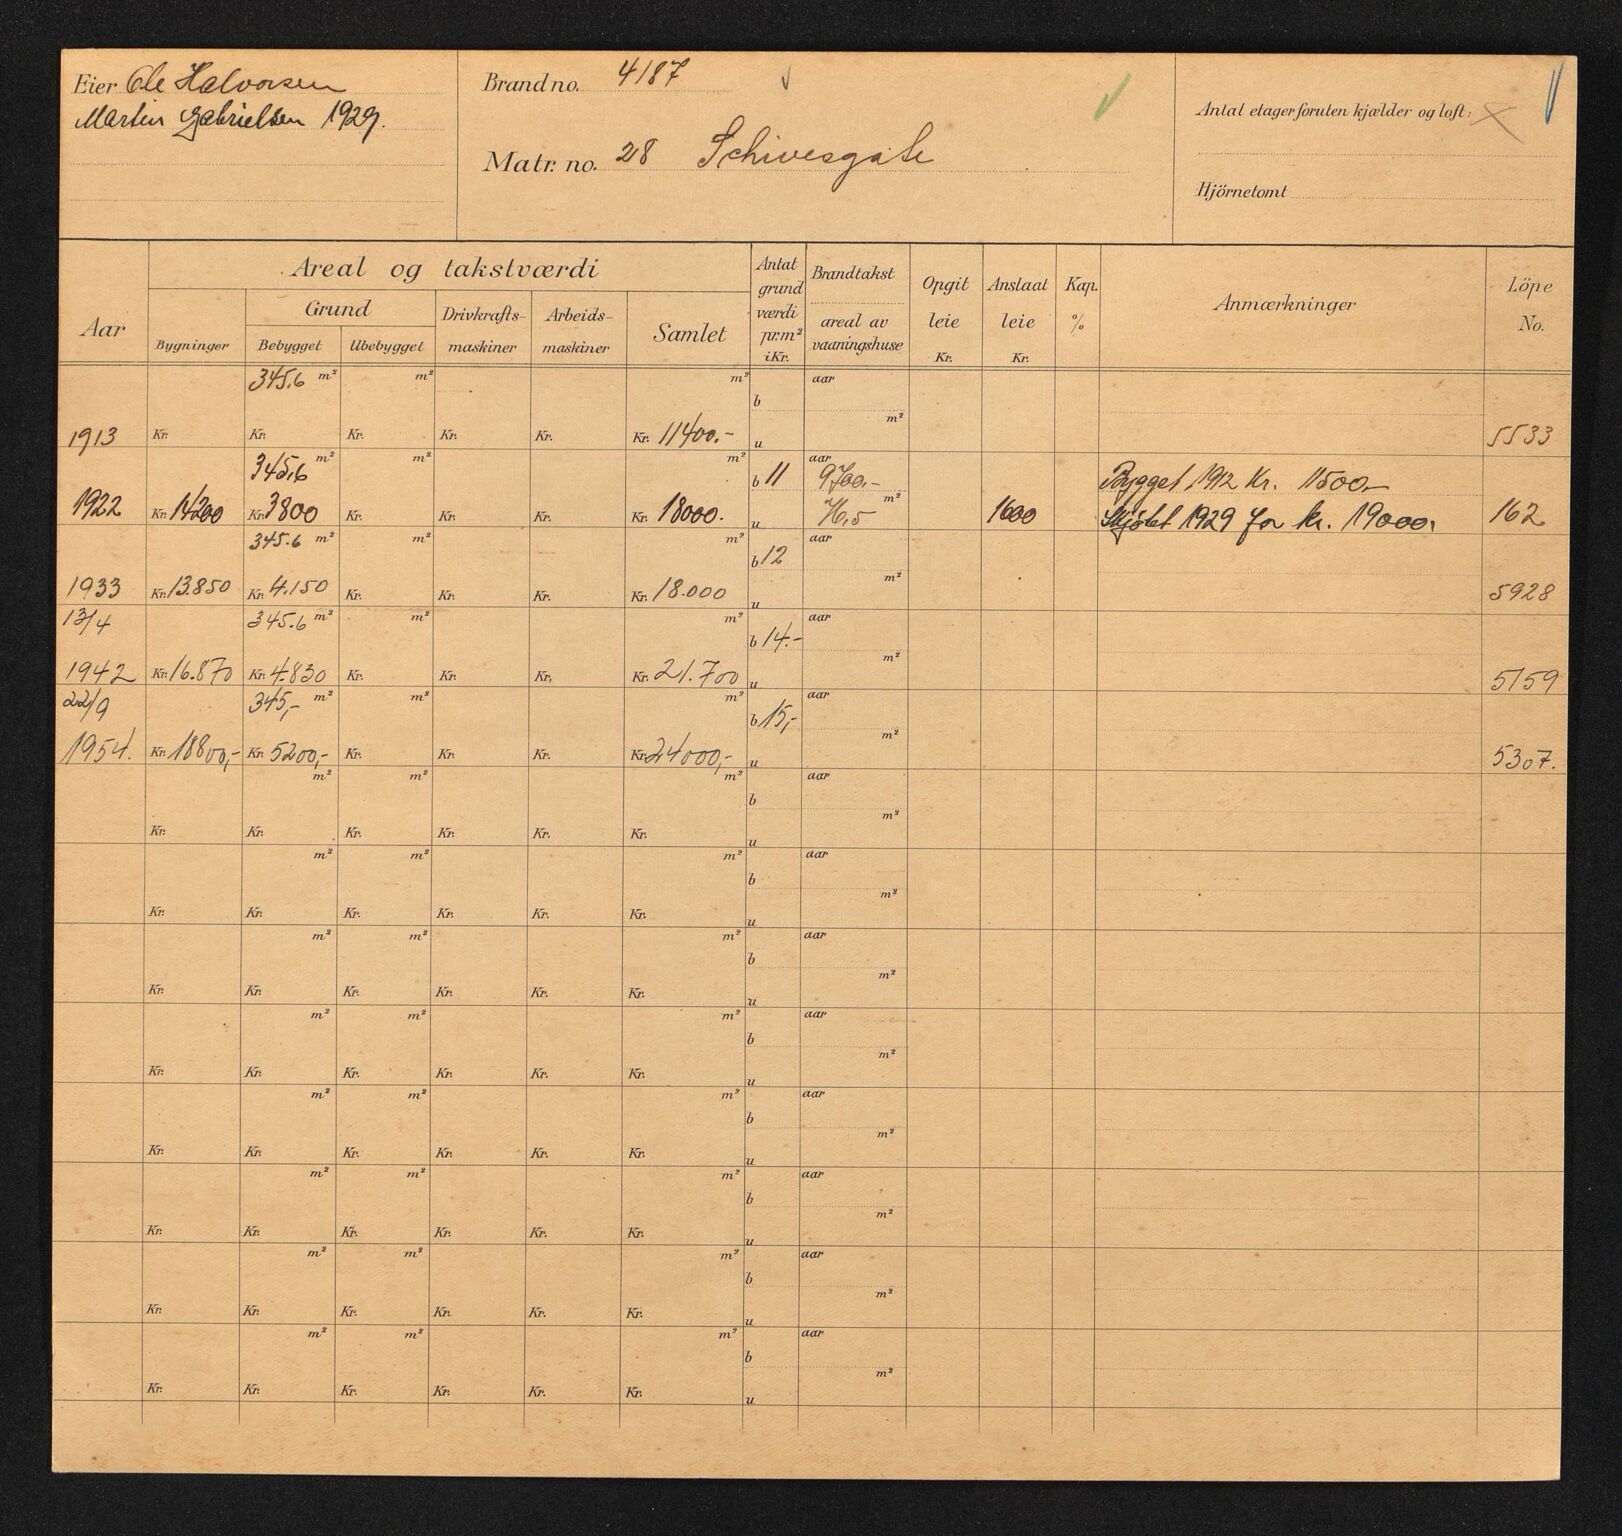 Eier Ole Halvorsen
Martin Gabrielsen 1929.
Brandno. 4187
Matr. no. 28 Schivesgate
Antal etager foruten kjælder og loft:
Hjörnetomt
Aar
Areal og takstværdi
Grund
Bygninger
Bebygget
Ubebygget
Drivkrafts-
maskiner
Arbeids-
maskiner
Samlet
Antat
grund
værdi
pr.m²
i Kr.
Brandtakst
areal av
vaaningshuse
Opgit
leie
Kr.
Anslaat
leie
Kr.
Kap.
%
Anmærkninger
Löpe
No.
345.6 m² m² m² aar
b
m²
1913 Kr. Kr. Kr. Kr. Kr. Kr. 11400.- u 5533
345,6 m² m² m² b 11 aar 9700.- Bygget 1912 Kr. 11500,-
1922 Kr. 14200 Kr. 3800 Kr. Kr. Kr. Kr. 18000. u 76,5 m² 1600 Skjøtet 1929 for kr. 19000, 162
345.6 m² m² m² b 12 aar
m²
1933 Kr. 13.850 Kr. 4.150 Kr. Kr. Kr. Kr. 18.000 u 5928
13/4 345.6 m² m² m² b 14.- aar
m²
1942 Kr. 16.870 Kr. 4.830 Kr. Kr. Kr. Kr. 21.700 u 5159
22/9 345,- m² m² m² b 15,- aar
m²
1954. Kr. 18800,- Kr. 5200,- Kr. Kr. Kr. Kr. 24000,- u 5307.
m² m² m² aar
b
m²
Kr. Kr. Kr. Kr. Kr. Kr. u
m² m² m² aar
b
m²
Kr. Kr. Kr. Kr. Kr. Kr. u
m² m² m² aar
b
m²
Kr. Kr. Kr. Kr. Kr. Kr. u
m² m² m² aar
b
m²
Kr. Kr. Kr. Kr. Kr. Kr. u
m² m² m² aar
b
m²
Kr. Kr. Kr. Kr. Kr. Kr. u
m² m² m² aar
b
m²
Kr. Kr. Kr. Kr. Kr. Kr. u
m² m² m² aar
b
m²
Kr. Kr. Kr. Kr. Kr. Kr. u
m² m² m² aar
b
m²
Kr. Kr. Kr. Kr. Kr. Kr. u